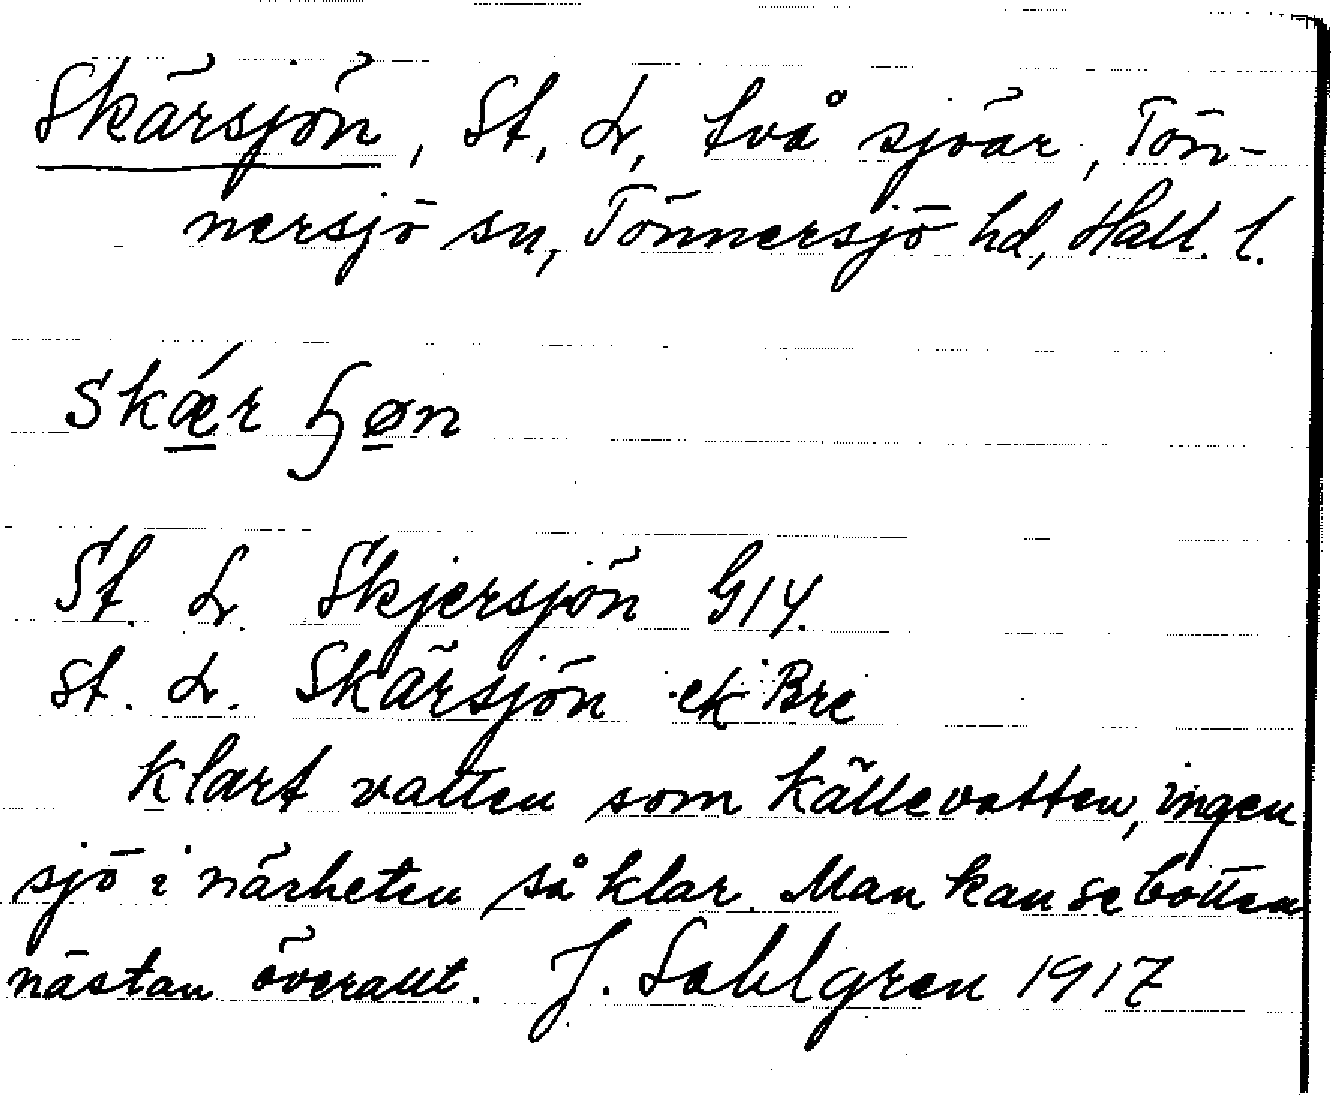 Skärsjön, St. L, två sjöar, Tön-
nersjö sn, Tönnersjö hd, Hall. l.
skǽr ɧøn
St. L. Skjersjön GIY.
St. L. Skärsjön ek Bre
klart vatten som källevatten, ingen
sjö i närheten så klar. Man kan se botten
nästan överallt. J. Sahlgren 1917